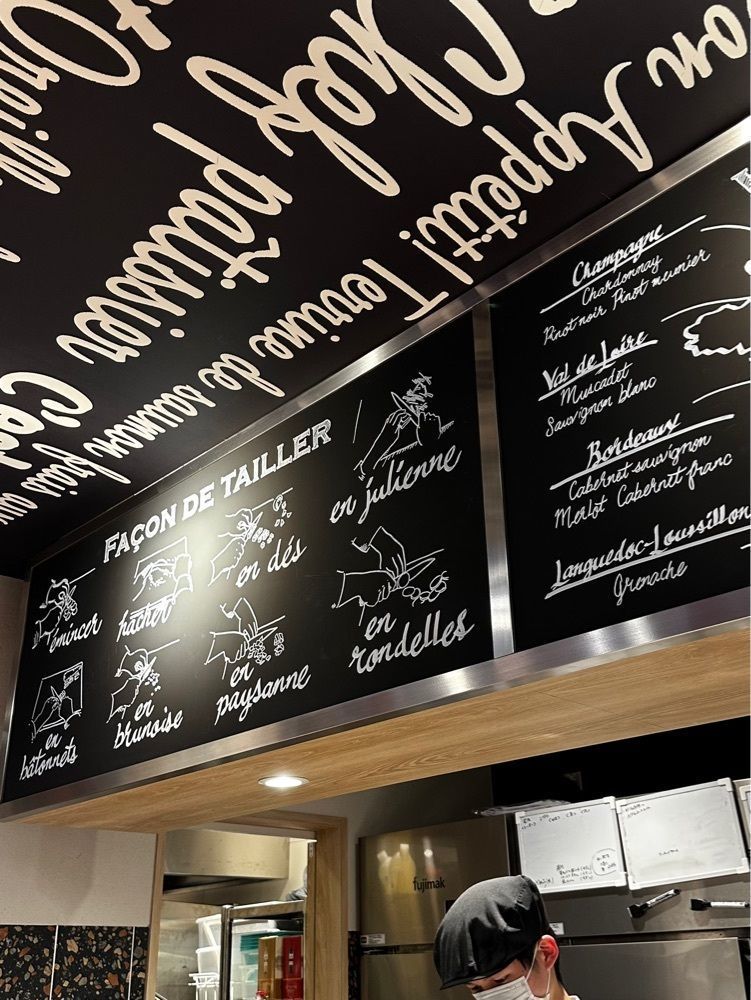 on Appétit! Terrine de saumon frais aux
Chef pâtissier C'est
FAÇON DE TAILLER
émincer
hacher
en dés
en julienne
en
bâtonnets
en
brunoise
en
paysanne
en
rondelles
Champagne
Chardonnay
Pinot noir Pinot meunier
Val de Loire
Muscadet
Sauvignon blanc
Bordeaux
Cabernet sauvignon
Merlot Cabernet franc
Languedoc-Loussillon
Grenache
fujimak